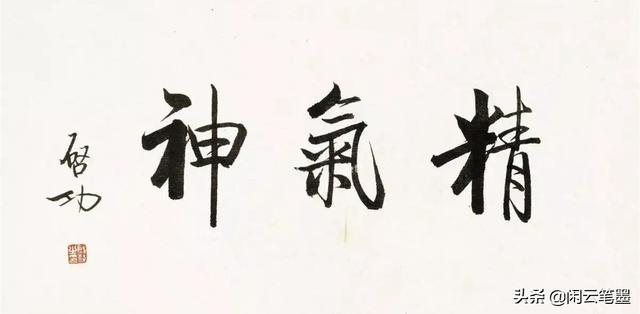 精氣神
启功
头条 @闲云笔墨